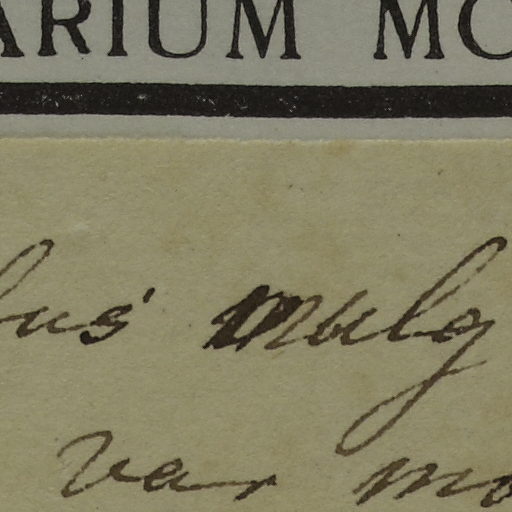 ARIUM MO
bus mulg
var mo